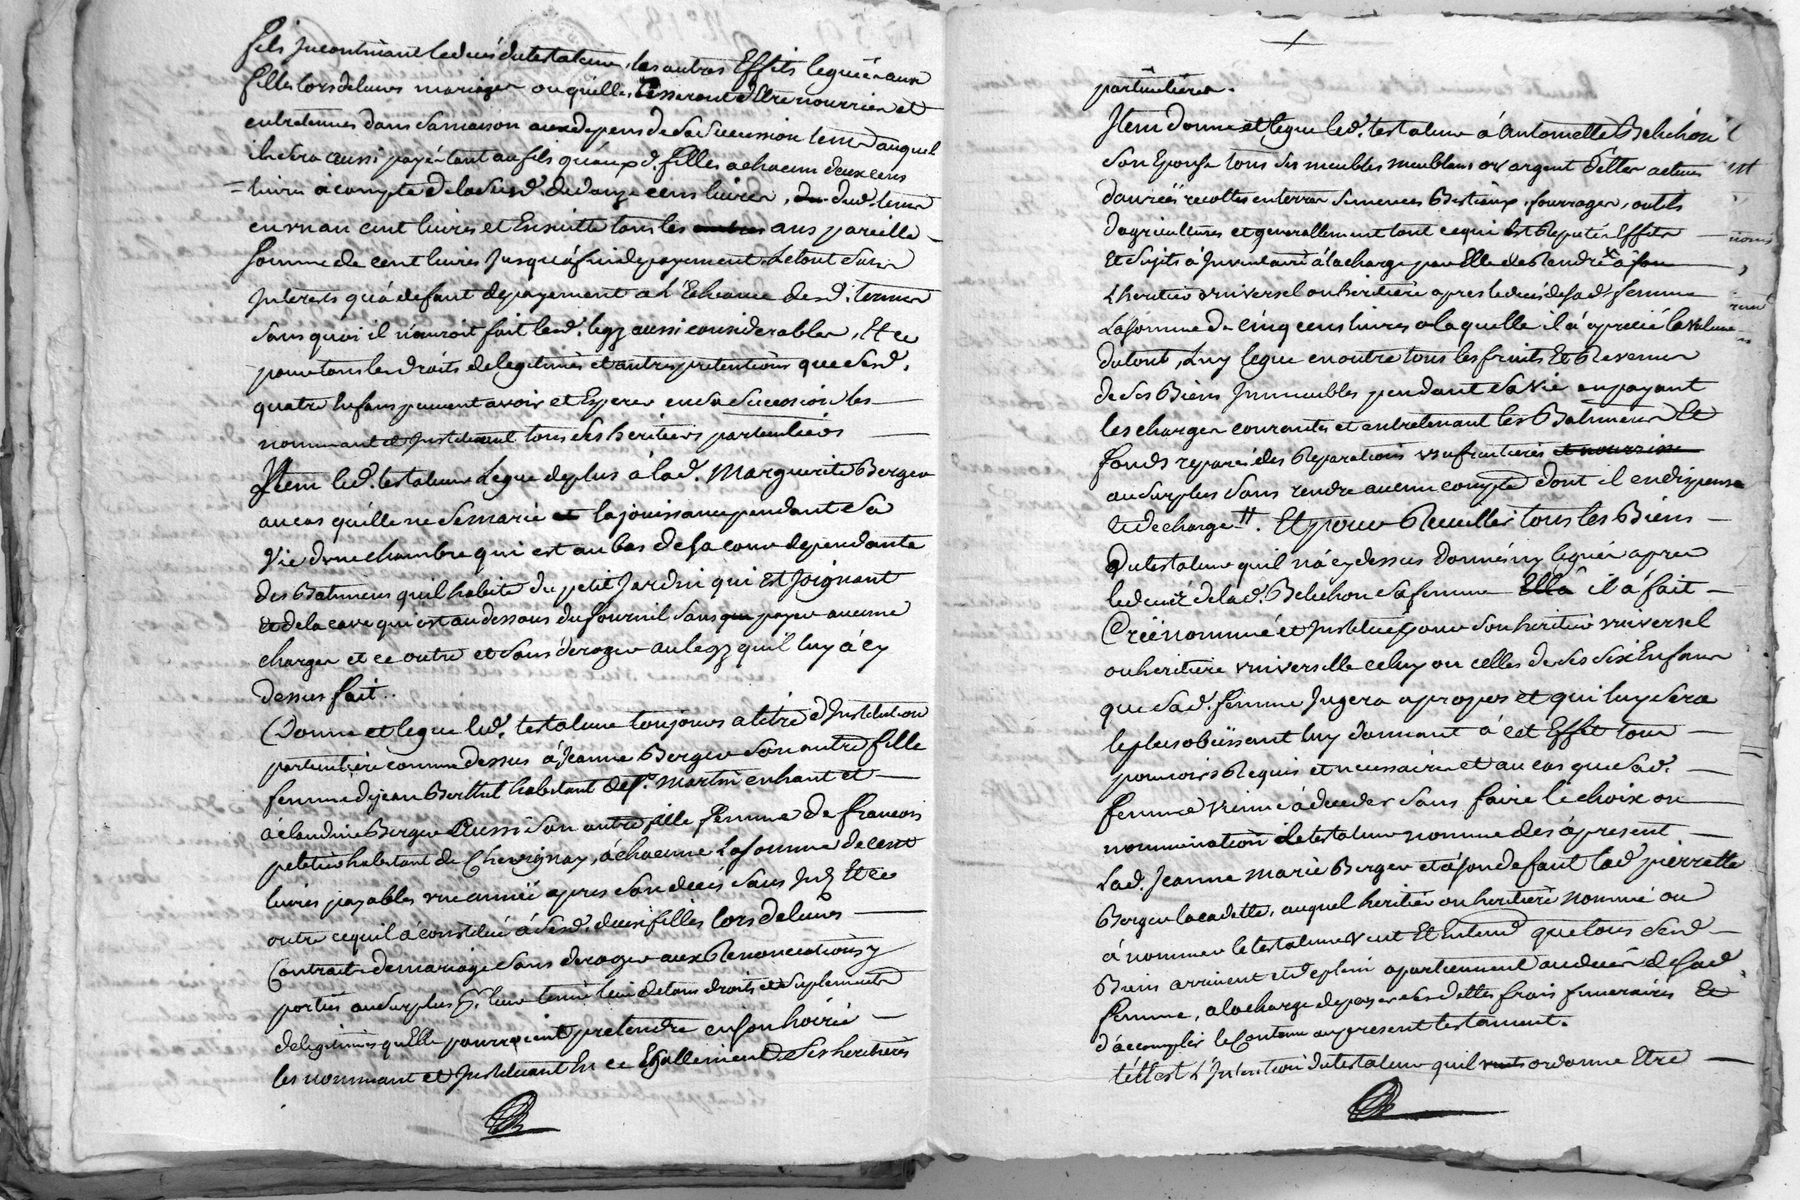 fils Incontinant le decès du testateur, les autres Effits leguée aux
filles lors de leurs mariages ou quelles Cesseront d'Etre nourries et
entretenues dans sa maison aux depens de sa succession tems auquel
il sera aussi payé tant au fils qu'aux d. filles a chacun deux cens
livres à compte de la susd. de cens livres, du d. tems
en un an cent livres et Ensuitte tous les ans pareille
somme de cent livres Jusqu'à fin de payement Le tout sans
Interets qu'a defaut de payement a L'Echeance desd. termes
sans quoi il n'auroit fait lesd. legz aussi considerables, Et ce
pour tous les droits de legitimes et autres pretentions que sesd.
quatre Enfans peuvent avoir et Esperer en sa succession les
nommant et Instituant tous ses heritiers particuliers
Item led. testateur Legue de plus à lad. Marguerite Berger
au cas qu'elle ne se marie la jouissance pendant sa
Vie d'une chambre qui est au bas de sa cour dependante
des Batimens qu'il habite du petit Jardin qui Est Joignant
et de la cave qui est au dessous du fournil sans payer aucune
charges et ce outre et sans deroger au legz qu'il luy a cy
dessus fait.
Donne et legue led. testateur toujours a titre d'Institution
particuliere comme dessus à Jeanne Berger son autre fille
femme de jean Berthet habitant de St. Martin en haut et
à claudine Berger Aussi son autre fille femme de francois
petetin habitant de Chevignay, à chacune La somme de cent
livres payables une année apres son decès sans Intz Et ce
outre ce qu'il a constitué à sesd. deux filles lors de leurs
Contrats de mariage sans deroger aux Renonciations y
portées au surplus pr. leur tenir lieu de tous droits et suplements
de legitimes qu'Elles pourroient pretendre en son hoirie
les nommant et Instituant En ce Egallement ses heritieres
particulieres.
Item donne et legue led. testateur à Antoinette Belichon
son Epouse tous ses meubles meublans or argent dettes actives
danrées recoltes en terres semences Bestiaux, fourrages, outils
d'agricultures et generallement tout ce qui Est Reputé Effets
Et sujets à Inventaire à la charge par Elle de Rendre à son
L'heritier universel ou heritiere apres le decès de sad. femme
La somme de cinq cens livres a laquelle il a aprecié la valeur
du tout, Luy legue en outre tous les fruits Et Revenus
de ses Biens Immeubles pendant sa vie en payant
les charges courantes et entretenant les Batimens Et
fonds reparés des Reparations usufruitieres et nourrir
au surplus sans rendre aucun compte dont il en dispense
et decharge. Et pour Recuillir tous les Biens
du testateur qu'il n'a cy dessus donnés ny legués apres
le decès de lad. Belichon sa femme Ella il a fait
Créé nommé et Institué pour son heritier universel
ou heritiere universelle celuy ou celles de ses six Enfans
que sad. femme Jugera a propos et qui luy sera
le plus obeissant luy donnant à cet Effet tous
pouvoirs Requis et necessaires et au cas que sad.
femme vienne à deceder sans faire le choix ou
nomination le testateur nomme dès à present
Lad. Jeanne Marie Berger et à son defaut lad. pierrette
Berger la cadette, auquel heritier ou heritiere nommé ou
à nommer le testateur veut Et Entend que tous sesd.
Biens arrivent et de plein apartiennent au decès de sad.
femme, a la charge de payer ses dettes frais funeraires Et
d'accomplir le Contenu au present testament.
telle est L'Intention du testateur qu'il veut ordonne Etre